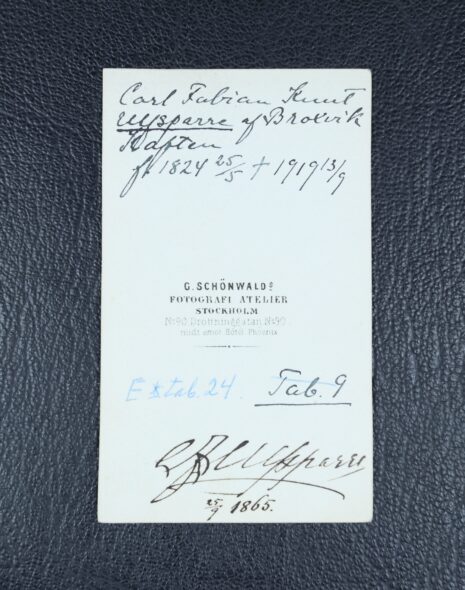 Carl Fabian Knut
Ulfsparre af Broxvik
Kapten
f. 1824 25/5 † 1919 13/9
G. SCHÖNWALDS
FOTOGRAFI ATELIER
STOCKHOLM
No 90 Drottninggatan No 90.
midt emot Hôtel Phoenix
E tab. 24. Tab. 9
Ulfsparre
25/9 1865.